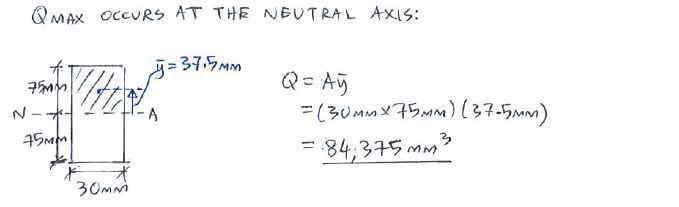 QMAX OCCURS AT THE NEUTRAL AXIS:
ȳ = 37.5MM
75MM
N
A
75MM
30MM
Q = Aȳ
= (30MM X 75MM) (37.5MM)
= 84,375 MM³